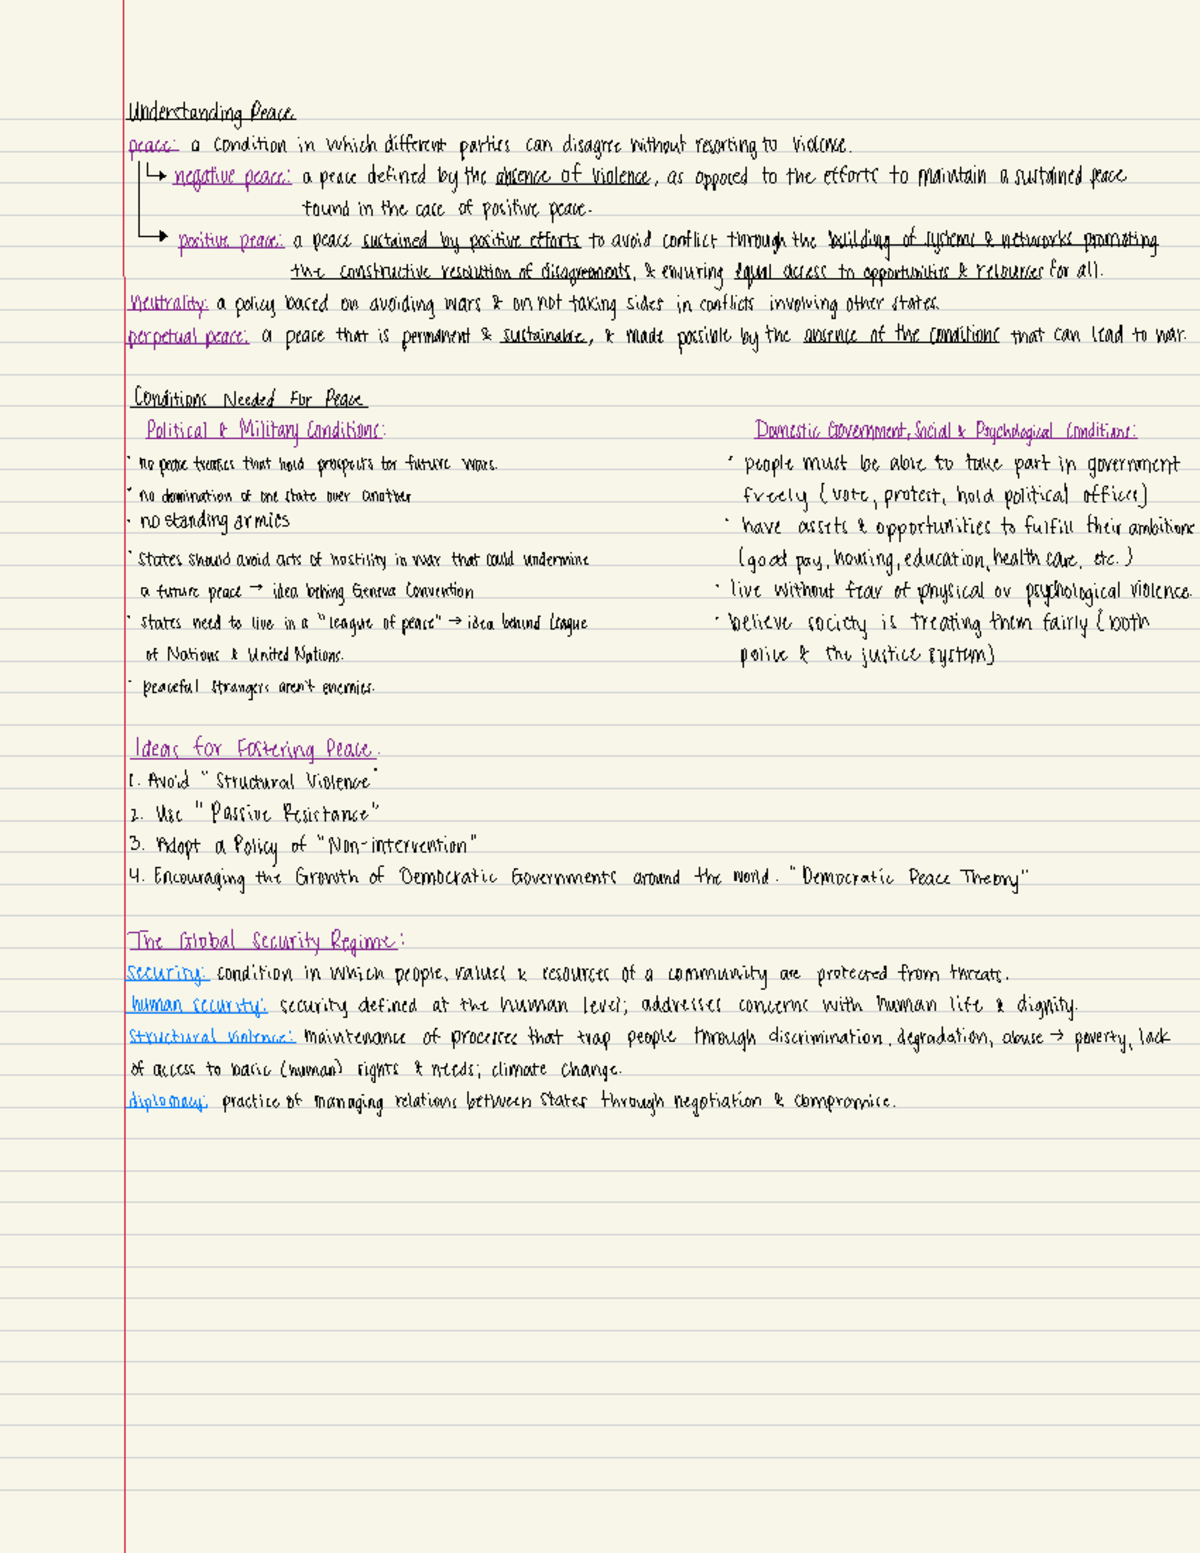 Understanding Peace
peace: a condition in which different parties can disagree without resorting to violence.
negative peace: a peace defined by the absence of violence, as opposed to the efforts to maintain a sustained peace
found in the case of positive peace.
positive peace: a peace sustained by positive efforts to avoid conflict through the building of systems & networks promoting
the constructive resolution of disagreements, & ensuring equal access to opportunities & resources for all.
neutrality: a policy based on avoiding wars & on not taking sides in conflicts involving other states.
perpetual peace: a peace that is permanent & sustainable, & made possible by the absence of the conditions that can lead to war.
Conditions Needed For Peace
Political & Military Conditions:
· no peace treaties that hold prospects for future wars.
· no domination of one state over another
· no standing armies
· states should avoid acts of hostility in war that could undermine
a future peace → idea behing Geneva Convention
· states need to live in a "league of peace" → idea behind League
of Nations & United Nations.
· peaceful strangers aren't enemies.
Domestic Government, Social & Psychological Conditions:
· people must be able to take part in government
freely (vote, protest, hold political offices)
· have assets & opportunities to fulfill their ambitions
(good pay, housing, education, health care, etc.)
· live without fear of physical or psychological violence.
· believe society is treating them fairly (both
police & the justice system)
Ideas for Fostering Peace.
1. Avoid "Structural Violence"
2. Use "Passive Resistance"
3. Adopt a Policy of "Non-intervention"
4. Encouraging the Growth of Democratic Governments around the world. "Democratic Peace Theory"
The Global Security Regime:
security: condition in which people, values & resources of a community are protected from threats.
human security: security defined at the human level; addresses concerns with human life & dignity.
structural violence: maintenance of processes that trap people through discrimination, degradation, abuse → poverty, lack
of access to basic (human) rights & needs; climate change.
diplomacy: practice of managing relations between states through negotiation & compromise.